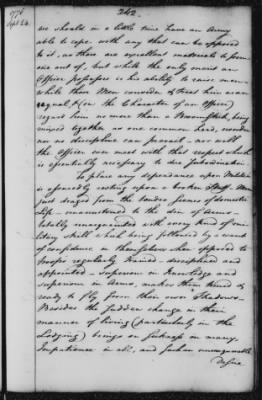 242.
1776
Sept 24.
we should in a little time have an Army
able to cope with any that can be opposed
to it, as there are excellent materials to form
one out of, but while the only merit an
Officer possesses is his ability to raise men –
while those Men consider & treat him as an
equal, & (in the Character of an Officer)
regard him no more than a Broomstick, being
mixed together as one common herd, no order
nor no discipline can prevail – nor will
the Officer ever meet with that respect which
is essentially necessary to due subordination. –
To place any dependance upon Militia
is assuredly resting upon a broken Staff. Men
just draged from the tender Scenes of domestic
Life – unaccustomed to the din of Arms –
totally unacquainted with every kind of mi-
litary skill, which being followed by a want
of confidence in themselves when opposed to
troops regularly trained – disciplined and
appointed – superior in knowledge and
superior in Arms, makes them timid &
ready to fly from their own Shadows –
Besides the sudden change in their
manner of living (particularly in the
Lodging) brings on sickness in many,
Impatience in all, and such an unconquerable
Desire